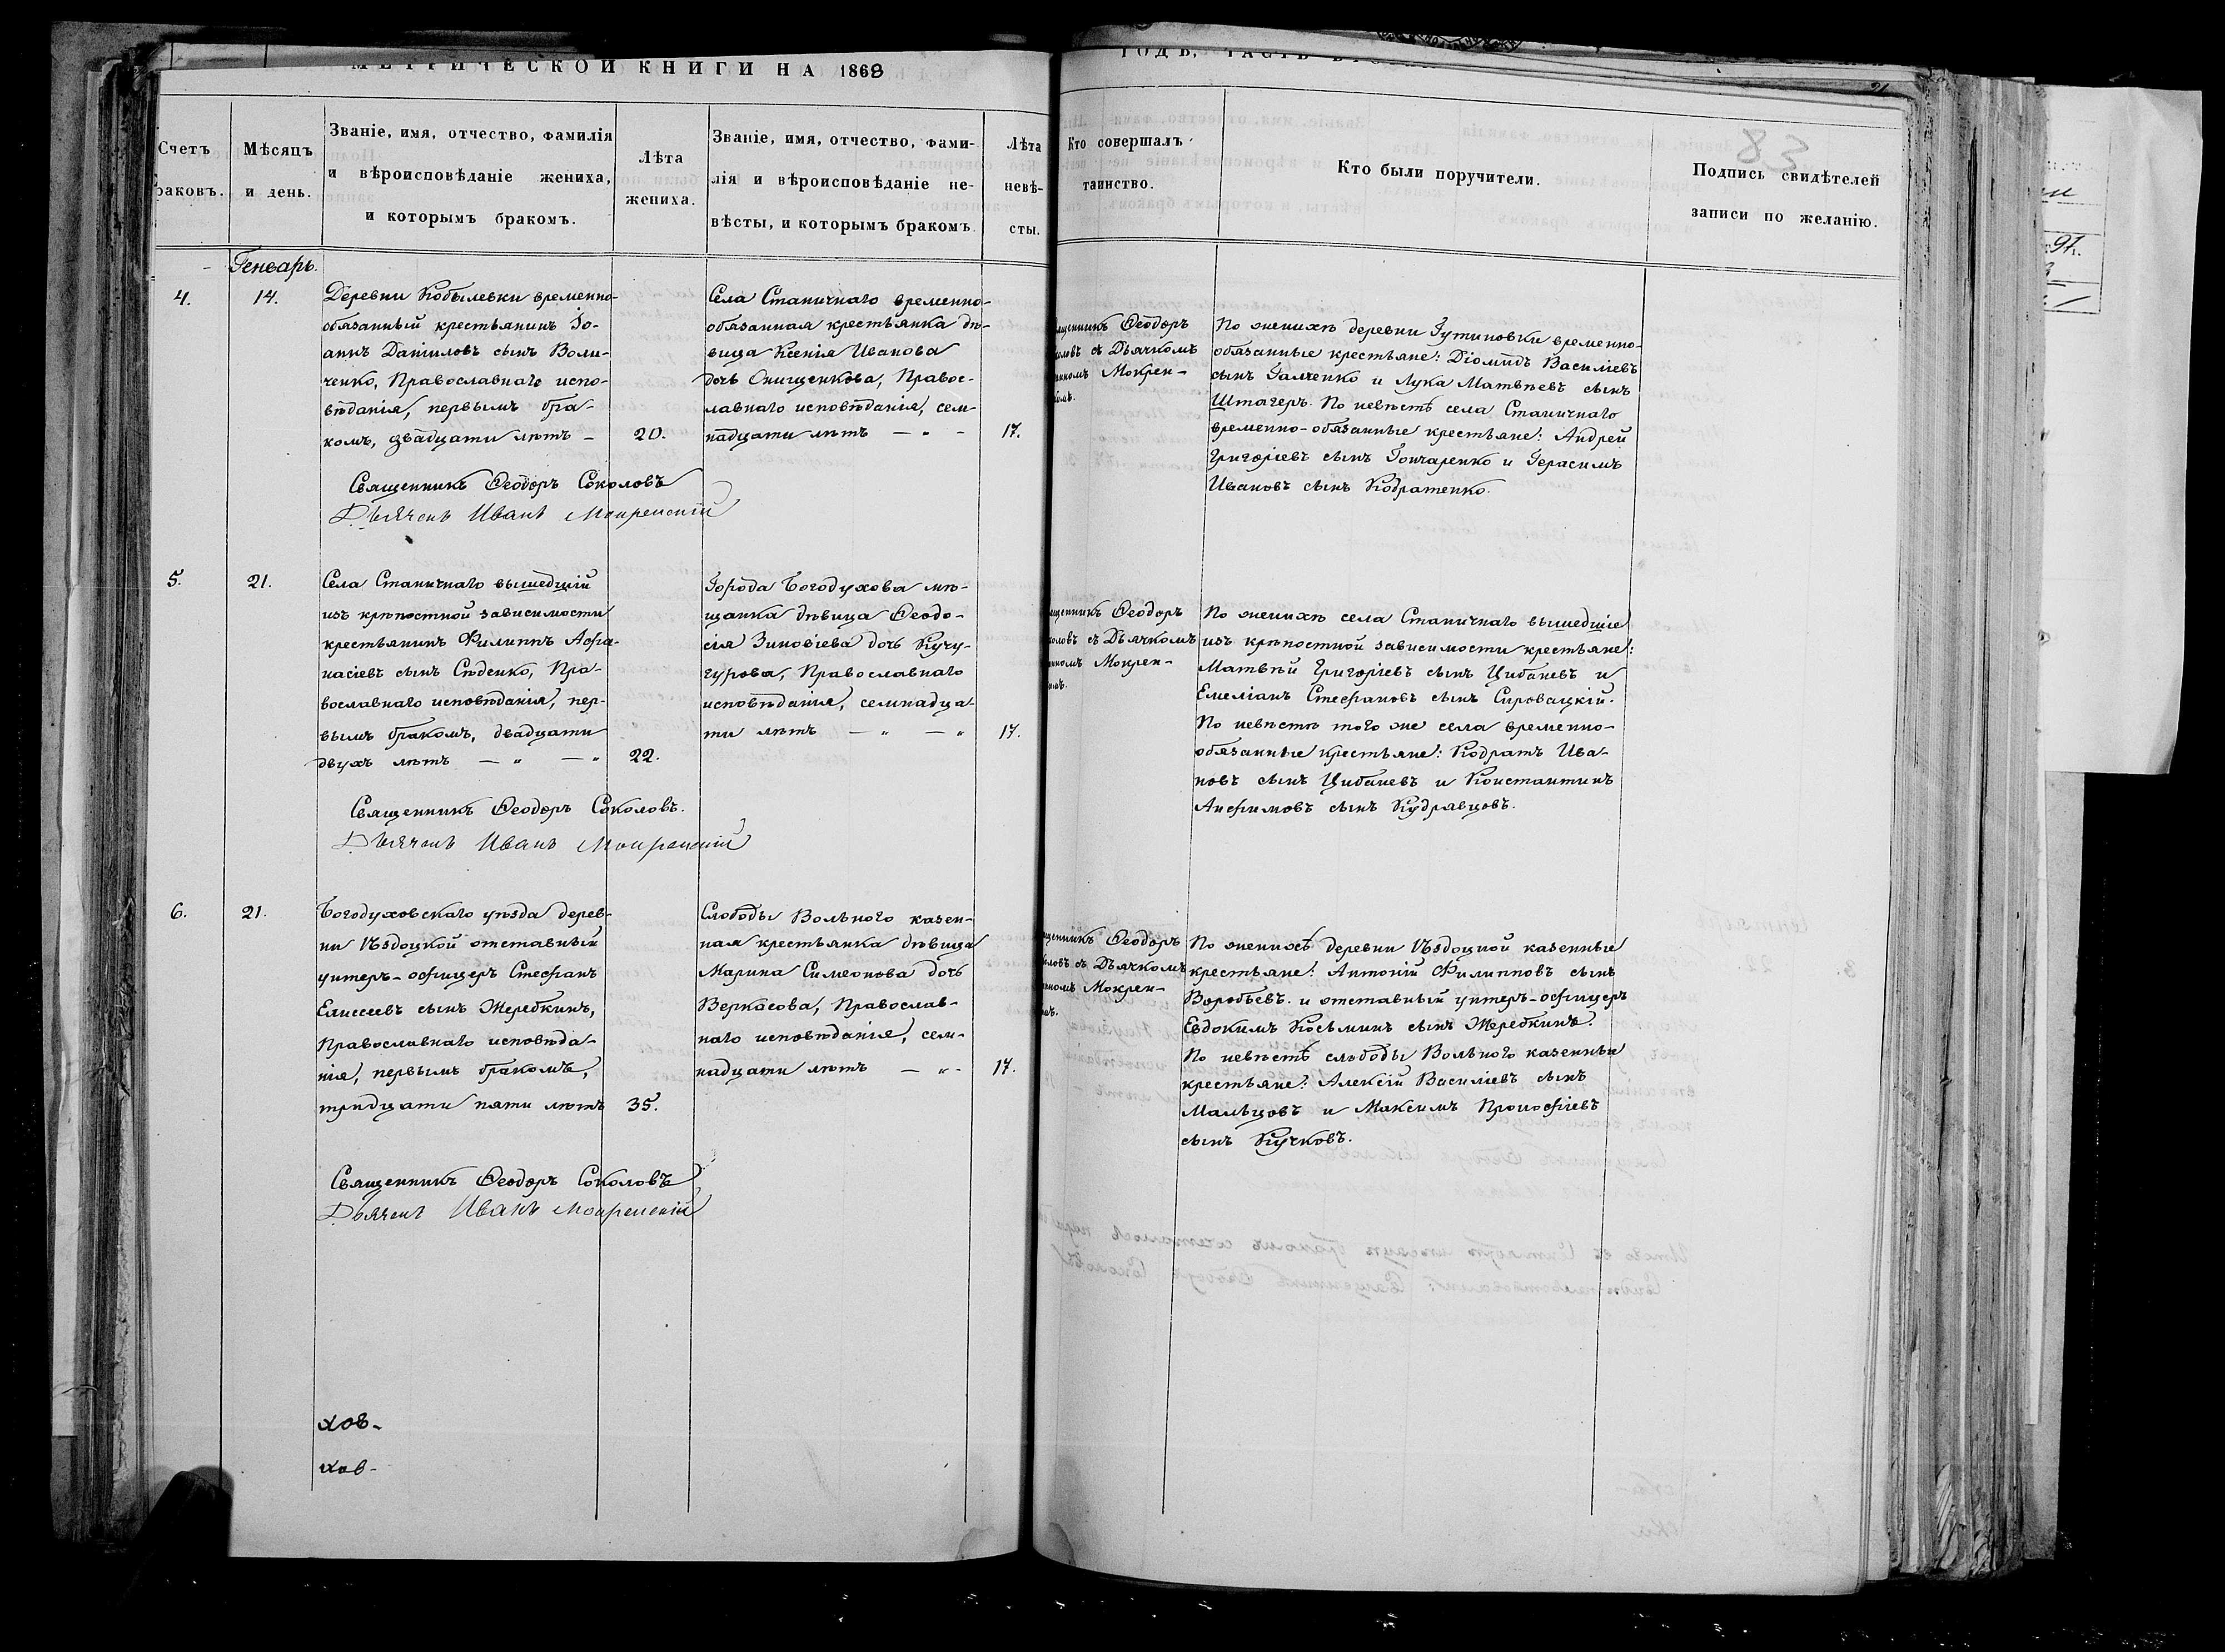 МЕТРИЧЕСКОЙ КНИГИ НА 1868
ГОДЪ, ЧАСТЬ
83
Счетъ
раковъ.
Мѣсяцъ
и день.
Званіе, имя, отчество, фамилія
и вѣроисповѣданіе жениха,
и которымъ бракомъ.
Лѣта
жениха.
Званіе, имя, отчество, фами-
лія и вѣроисповѣданіе не-
вѣсты, и которымъ бракомъ.
Лѣта
невѣ-
сты.
Кто совершалъ
таинство.
Кто были поручители.
Подпись свидѣтелей
записи по желанію.
Генварь.
4.
14.
Деревни Кобылевки временно-
обязанный крестьянинъ Іо-
аннъ Даніиловъ сынъ Воли-
ченко, Православнаго испо-
вѣданія, первымъ бра-
комъ, двадцати лѣтъ –
20.
Села Станичнаго временно-
обязанная крестьянка дѣ-
вица Ксенія Иванова
дочь Онищенкова, Правос-
лавнаго исповѣданія, сем-
надцати лѣтъ — „ –
17.
щенникъ Ѳеодоръ
ловъ съ Дьячкомъ
номъ Мокрен-
По женихѣ деревни Гутиновки временно-
обязанные крестьяне: Діомидъ Василіевъ
сынъ Галченко и Лука Матвѣевъ сынъ
Штагеръ. По невѣстѣ села Станичнаго
временно-обязанные крестьяне: Андрей
Григоріевъ сынъ Гончаренко и Герасимъ
Ивановъ сынъ Кодратенко.
Священникъ Ѳеодоръ Соколовъ
Дьячекъ Иванъ Мокренскій
5.
21.
Села Станичнаго вышедшій
изъ крѣпостной зависимости
крестьянинъ Филиппъ Афа-
насіевъ сынъ Сѣденко, Пра-
вославнаго исповѣданія, пер-
вымъ бракомъ, двадцати
двухъ лѣтъ — „ — „
22.
Города Богодухова мѣ-
щанка дѣвица Ѳеодо-
сія Зиновіева дочь Кучу-
гурова, Православнаго
исповѣданія, семнадца-
ти лѣтъ — „ — „
17.
щенникъ Ѳеодоръ
коловъ съ Дьячкомъ
номъ Мокрен-
По женихѣ села Станичнаго вышедшіе
изъ крѣпостной зависимости крестьяне:
Матвѣй Григоріевъ сынъ Цибаневъ и
Емеліанъ Стефановъ сынъ Сировацкій.
По невѣстѣ того же села временно-
обязанные крестьяне: Кодратъ Ива-
новъ сынъ Цибаневъ и Константинъ
Анфимовъ сынъ Кудрявцовъ.
Священникъ Ѳеодоръ Соколовъ.
Дьячекъ Иванъ Мокренскій
6.
21.
Богодуховскаго уѣзда дерев-
ни Ѣздоцкой отставный
унтеръ-офицеръ Стефанъ
Елисеевъ сынъ Жеребкинъ,
Православнаго исповѣда-
нія, первымъ бракомъ,
тридцати пяти лѣтъ
35.
Слободы Вольного казен-
ная крестьянка дѣвица
Марина Симеонова дочь
Веркасова, Православ-
наго исповѣданія, сем-
надцати лѣтъ — „ -
17.
щенникъ Ѳеодоръ
ловъ съ Дьячкомъ
номъ Мокрен-
По женихѣ деревни Ѣздоцкой казенные
крестьяне: Антоній Филипповъ сынъ
Воробьевъ. и отставный унтеръ-офицеръ
Евдокимъ Косьминъ сынъ Жеребкинъ.
По невѣстѣ слободы Вольного казенные
крестьяне: Алексій Василіевъ сынъ
Мальцовъ и Максимъ Прокофіевъ
сынъ Кучковъ.
Священникъ Ѳеодоръ Соколовъ
Дьячекъ Иванъ Мокренскій
хов-
хов-